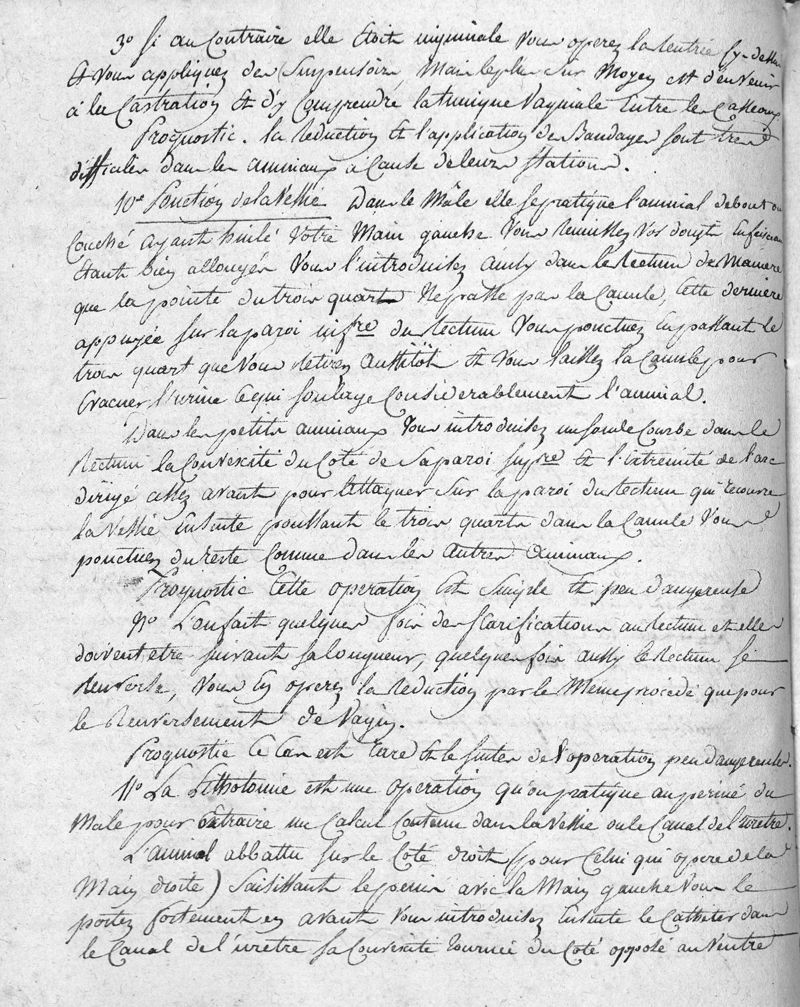 3º Si au Contraire elle Etoit inguinale Vous operez la rentrée Cy-dessus
Et Vous appliquez des Suspensoirs, Mais le plus sur Moyen est d'en Venir
à la Castration Et d'y Comprendre la tunique Vaginale Entre les Casseaux
Prognostic. la reduction Et l'application des Bandages sont tres
difficiles dans les animaux à Cause de leurs Stations.
10e Ponction de la Vessie Dans le Mâle elle se pratique l'animal debout ou
Couché ayant huilé Votre Main gauche Vous reunissez Vos doigts En faisceau
Etant bien allongés Vous l'introduisez ainsy dans le rectum de Maniere
que la pointe du trois quart Ne passe pas la Canule, Cette derniere
appuyée sur la paroi infre du rectum Vous ponctuez En poussant le
trois quart que Vous retirez aussitôt Et Vous laissez la Canule pour
Evacuer l'urine Ce qui soulage Considerablement l'animal.
Dans les petits animaux Vous introduisez une sonde Courbe dans le
Rectum la Convexité du Coté de sa paroi supre Et l'extremité de l'arc
dirigé assez avant pour l'attaquer sur la paroi du rectum qui recouvre
la Vessie Ensuite poussant le trois quarts dans la Canule Vous
ponctuez du reste Comme dans les autres animaux.
Prognostic Cette operation Est simple Et peu dangereuse
L'on fait quelques fois des scarifications au rectum et elles
doivent etre suivant sa longueur, quelques fois aussy le rectum se
renverse, Vous En operez la reduction par le Même procédé que pour
le renversement de Vagin.
Prognostic Ce Cas est rare Et les suites de l'operation peu dangereuses.
11º La Lithotomie est une operation qu'on pratique au periné du
Male pour Extraire un Calcul Contenu dans la Vessie ou le Canal de l'uretre.
L'animal abbattu sur le Coté droit (pour Celui qui opere de la
Main droite) saisissant le penis avec la Main gauche Vous le
portez fortement en avant Vous introduisez Ensuite le Catheter dans
le Canal de l'uretre sa Convexité tournée du Coté opposé au Ventre